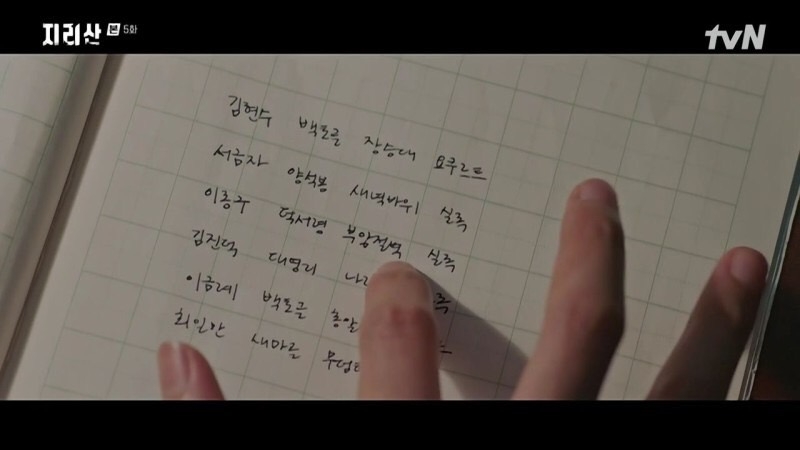 지리산 본 5화
tvN
김현수 백토골 장승대 요쿠르트
서금자 양석봉 새덕바위 실족
이종구 덕서령 부암절벽 실족
김진덕 대영리
이금례 백토골
최일만 새마을